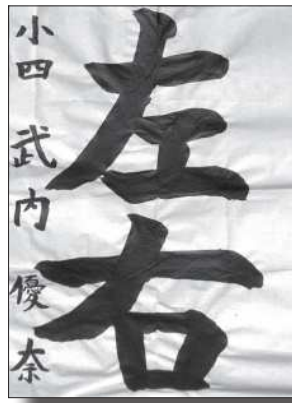 左右
小四 武内 優奈